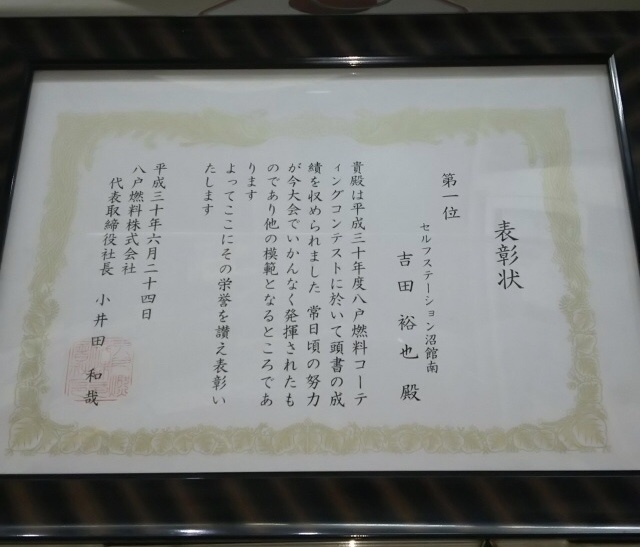 表彰状
第一位
セルフステーション沼館南
吉田裕也 殿
貴殿は平成三十年度八戸燃料コーテ
ィングコンテストに於いて頭書の成
績を収められました 常日頃の努力
が今大会でいかんなく発揮されたも
のであり他の模範となるところであ
ります
よってここにその栄誉を讃え表彰い
たします
平成三十年六月二十四日
八戸燃料株式会社
代表取締役社長 小井田 和哉